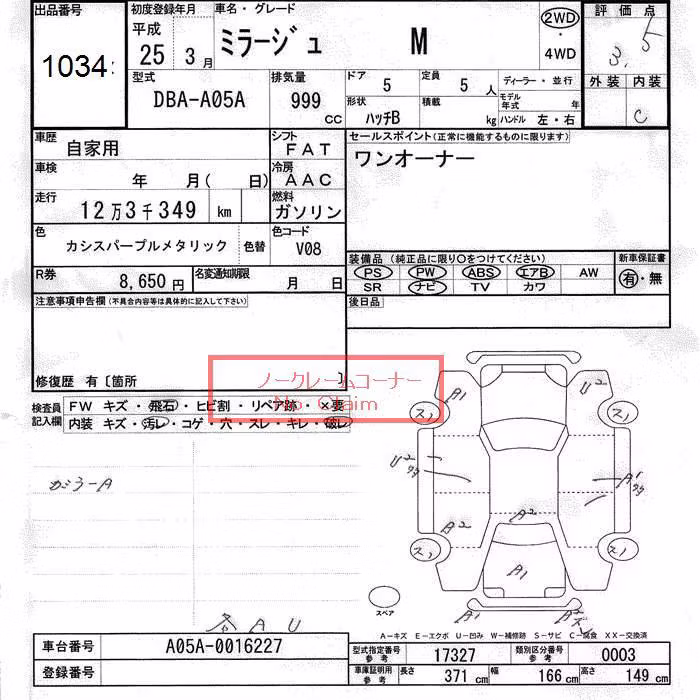 出品番号 初度登録年月 車名・グレード 評価点
1034 平成 25 3月 ミラージュ M 2WD・4WD 3.5
型式 排気量 ドア 5 定員 5人 ディーラー・並行 外装 内装
DBA-A05A 999 cc 形状 ハッチB 積載 kg モデル年式 年 ハンドル 左・右 C
車歴 自家用 シフト FAT セールスポイント(正常に機能するものに限ります)
車検 年 月( 日) 冷房 AAC ワンオーナー
走行 12万3千349 km 燃料 ガソリン
色 カシスパープルメタリック 色替 色コード V08
装備品 (純正品に限り○をつけてください) 新車保証書
PS PW ABS エアB AW 有・無
SR ナビ TV カワ
R券 8,650円 名変通知期限 月 日
後日品
注意事項申告欄(不具合内容等は具体的に記入して下さい)
修復歴 有〔箇所 〕
ノークレームコーナー
No Claim
検査員記入欄
FW キズ・飛石・ヒビ割・リペア跡・×要
内装 キズ・汚レ・コゲ・穴・スレ・キレ・破レ
A1 U2
ス1 ス1
ガラーA
U2 A1
A2 A2
ス1 ス1
A1
スペア
A1 A2
各 A U
A-キズ E-エクボ U-凹み W-補修跡 S-サビ C-腐食 XX-交換済
車台番号 A05A-0016227
登録番号
型式指定番号 参考 17327 類別区分番号 参考 0003
車庫証明用 参考 長さ 371 cm 幅 166 cm 高さ 149 cm